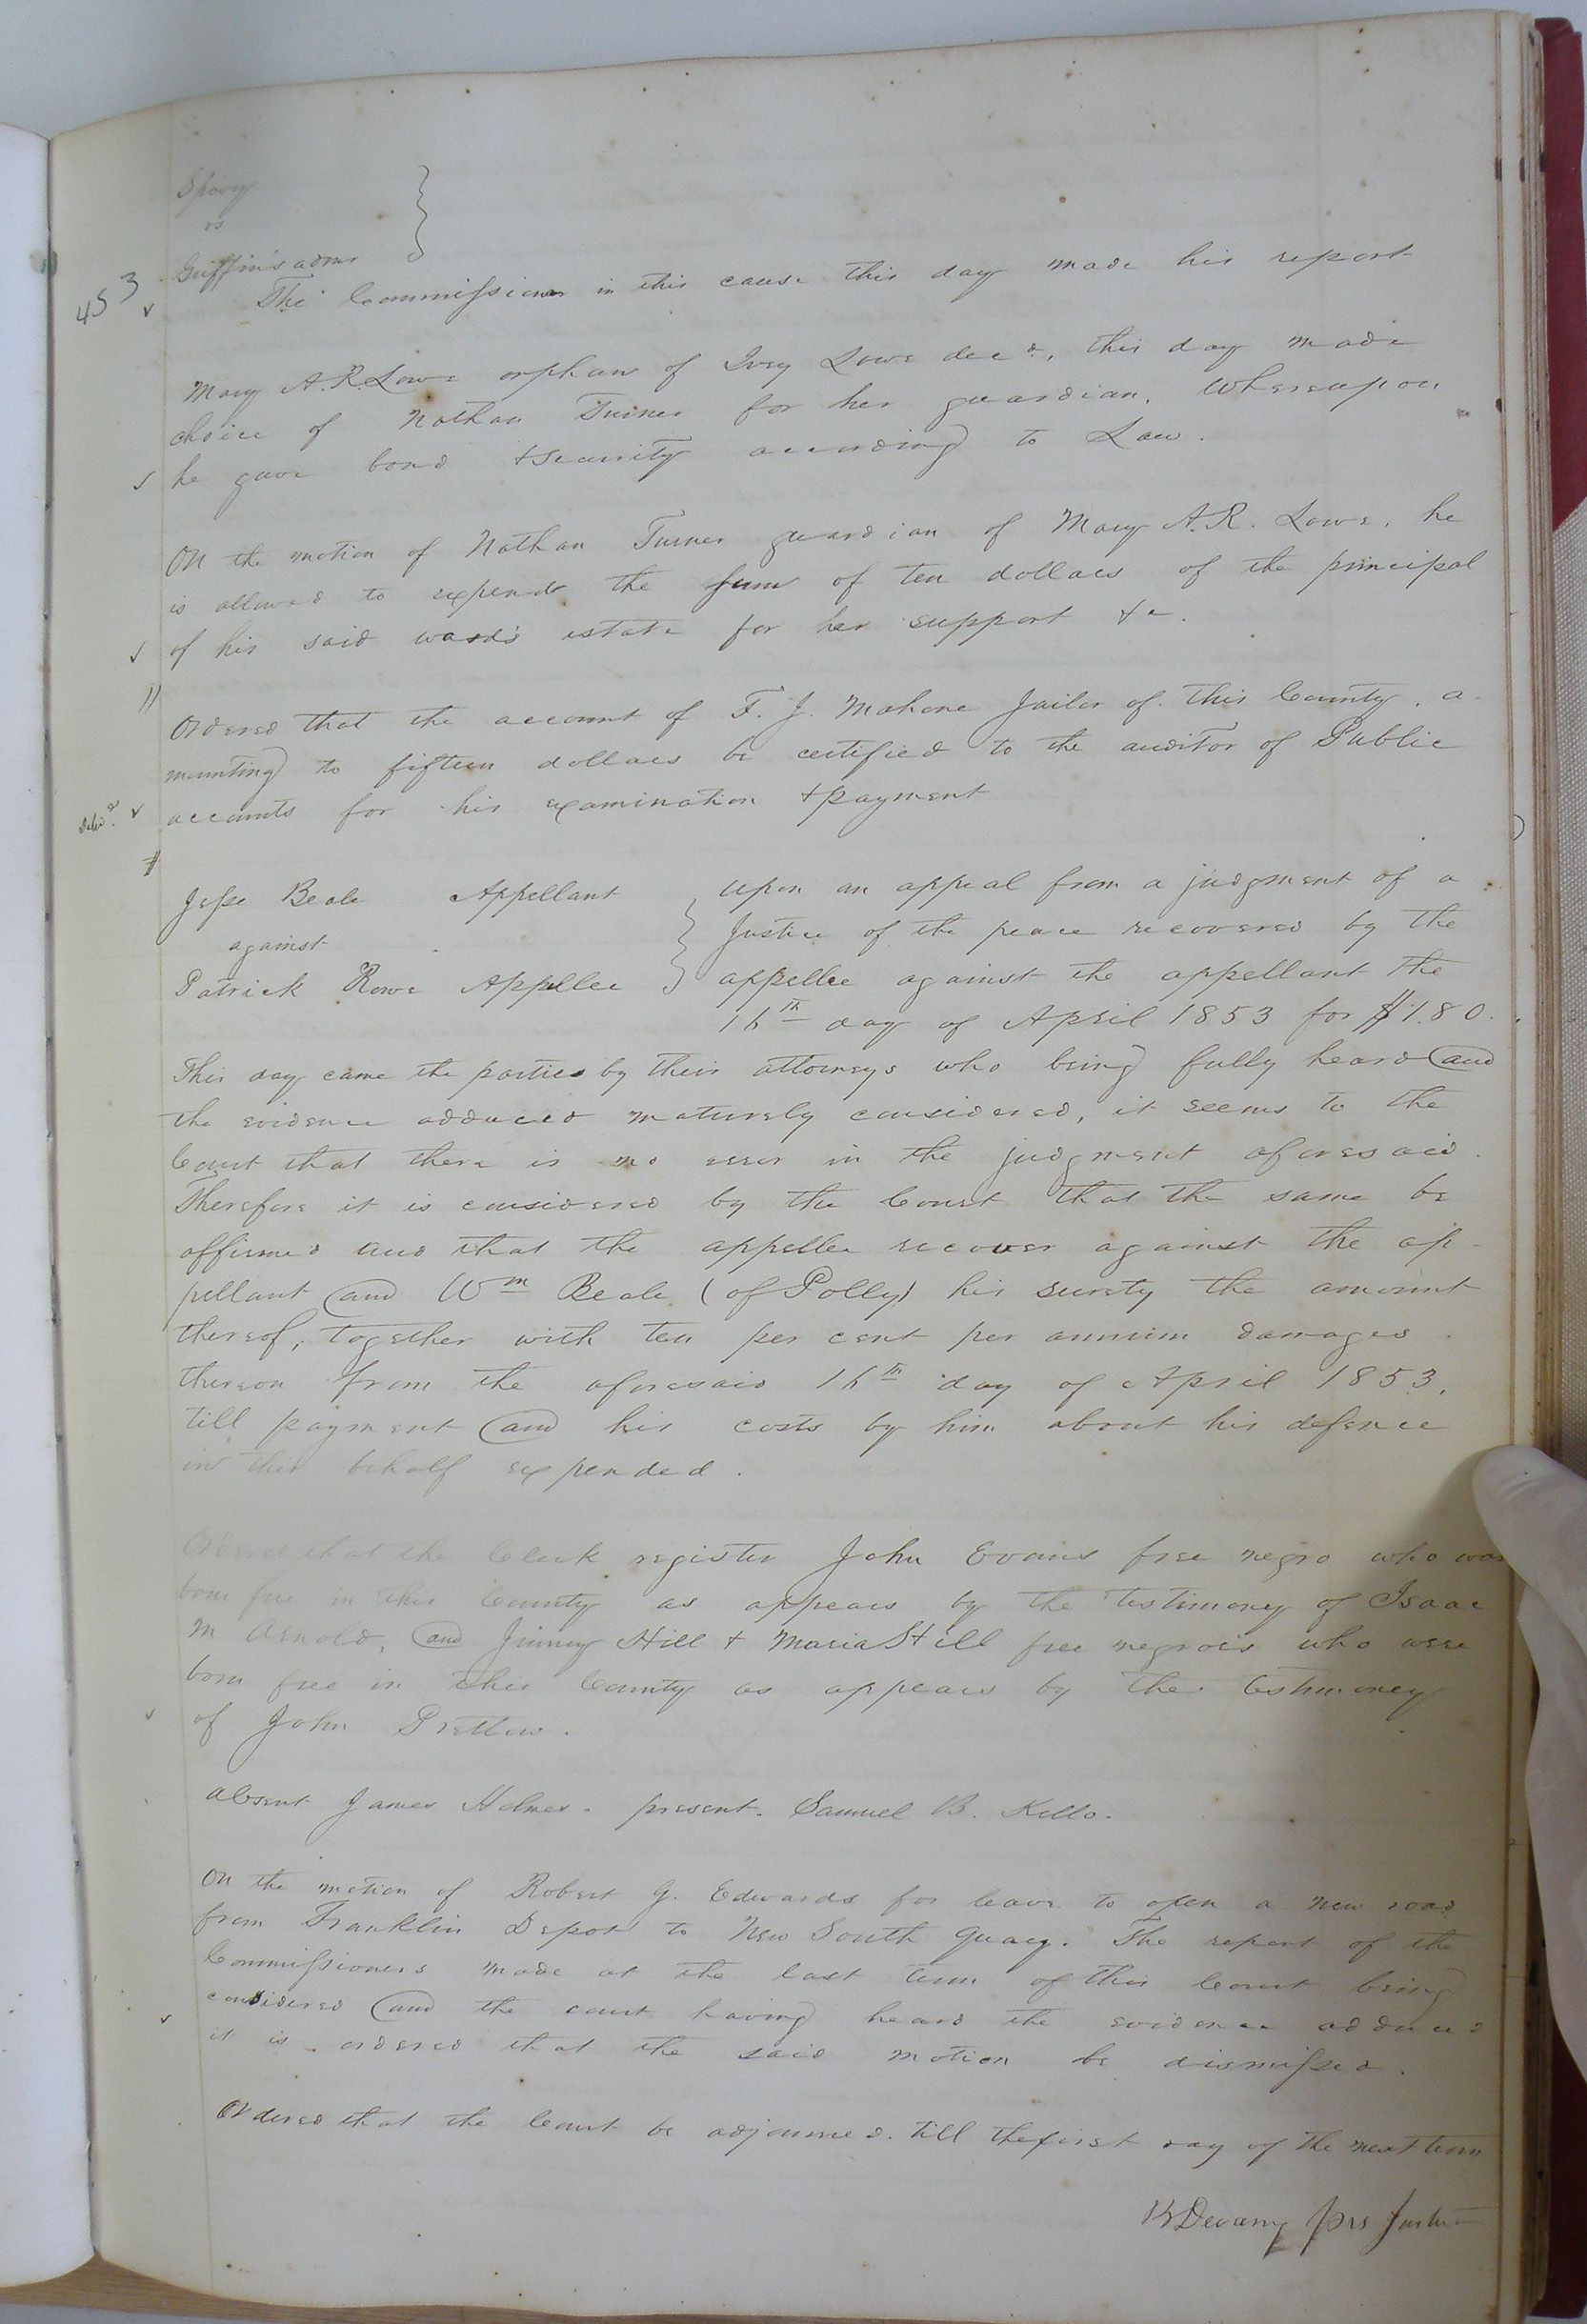 Spivy
vs
Griffin's admr
453
The Commissioner in this cause this day made his report
Mary A. R. Lowe orphan of Ivey Lowe decd., this day made
choice of Nathan Turner for her guardian. Whereupon
he gave bond + security according to Law.
On the motion of Nathan Turner guardian of Mary A. R. Lowe, he
is allowed to expend the sum of ten dollars of the principal
of his said ward's estate for her support &c.
Ordered that the account of T. J. Mahone Jailor of this County, a-
mounting to fifteen dollars be certified to the auditor of Public
accounts for his examination + payment
Jesse Beale Appellant
against
Patrick Rowe Appellee
upon an appeal from a judgment of a
Justice of the peace recovered by the
appellee against the appellant the
16th day of April 1853 for $1.80.
This day came the parties by their attorneys who being fully heard and
the evidence adduced maturely considered, it seems to the
Court that there is no error in the judgment aforesaid.
Therefore it is considered by the Court that the same be
affirmed and that the appellee recover against the ap-
pellant and Wm Beale (of Polly) his surety the amount
thereof, together with ten per cent per annum damages
thereon from the aforesaid 16th day of April 1853,
till payment and his costs by him about his defence
in this behalf expended.
Ordered that the Clerk register John Evans free negro who was
born free in this County as appears by the testimony of Isaac
M Arnold, and Jinney Hill + Maria Still free negroes who were
born free in this County as appears by the testimoney
of John Pretlow.
absent James Holmes. present. Samuel B. Kello.
On the motion of Robert G. Edwards for leave to open a new road
from Franklin Depot to New South Quay. The report of the
Commissioners made at the last term of this Court being
considered and the court having heard the evidence adduced
it is ordered that the said motion be dismissed.
Ordered that the Court be adjourned till the first day of the next term
Devany Prs Justice